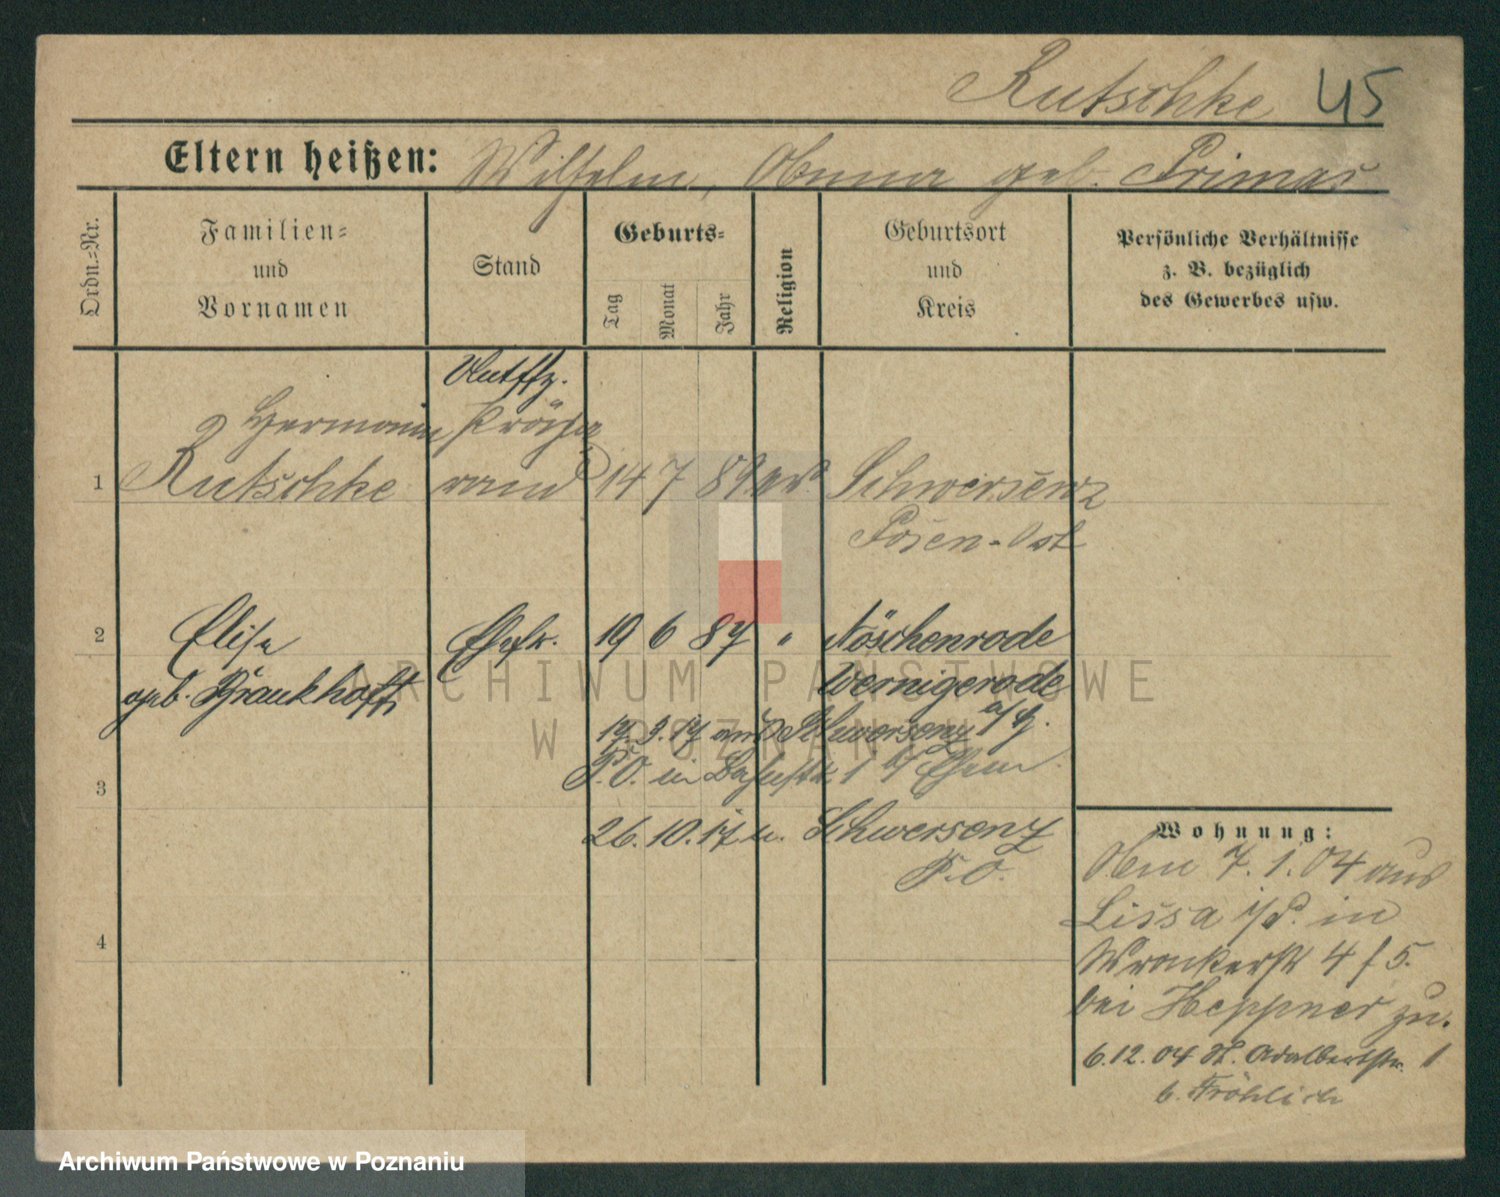 Rutschke 45
Eltern heißen: Wilhelm, Anna geb. Primas
Ordn.=Nr.
Familien=
und
Vornamen
Stand
Geburts=
Tag
Monat
Jahr
Religion
Geburtsort
und
Kreis
Persönliche Verhältnisse
z. B. bezüglich
des Gewerbes usw.
Hermann
1 Rutschke 14 7 89 ev. Schwersenz
Posen-Ost
2 Elise Ehefr. 19 6 87 " Nöschenrode
geb. Brankhoff Wernigerode
a/H.
17. 9. 17 aus Schwersenz
P.O. in 1 Ehem.
3
26. 10. 17 n. Schwersenz
P.O.
Wohnung:
Am 7. 1. 04 aus
Lissa i/P. in
Wronkerstr 4/5.
bei Heppner zu.
4
6.12.04 St. Adalbertstr. 1
b. Fröhlich
ARCHIWUM PAŃSTWOWE
W POZNANIU
Archiwum Państwowe w Poznaniu